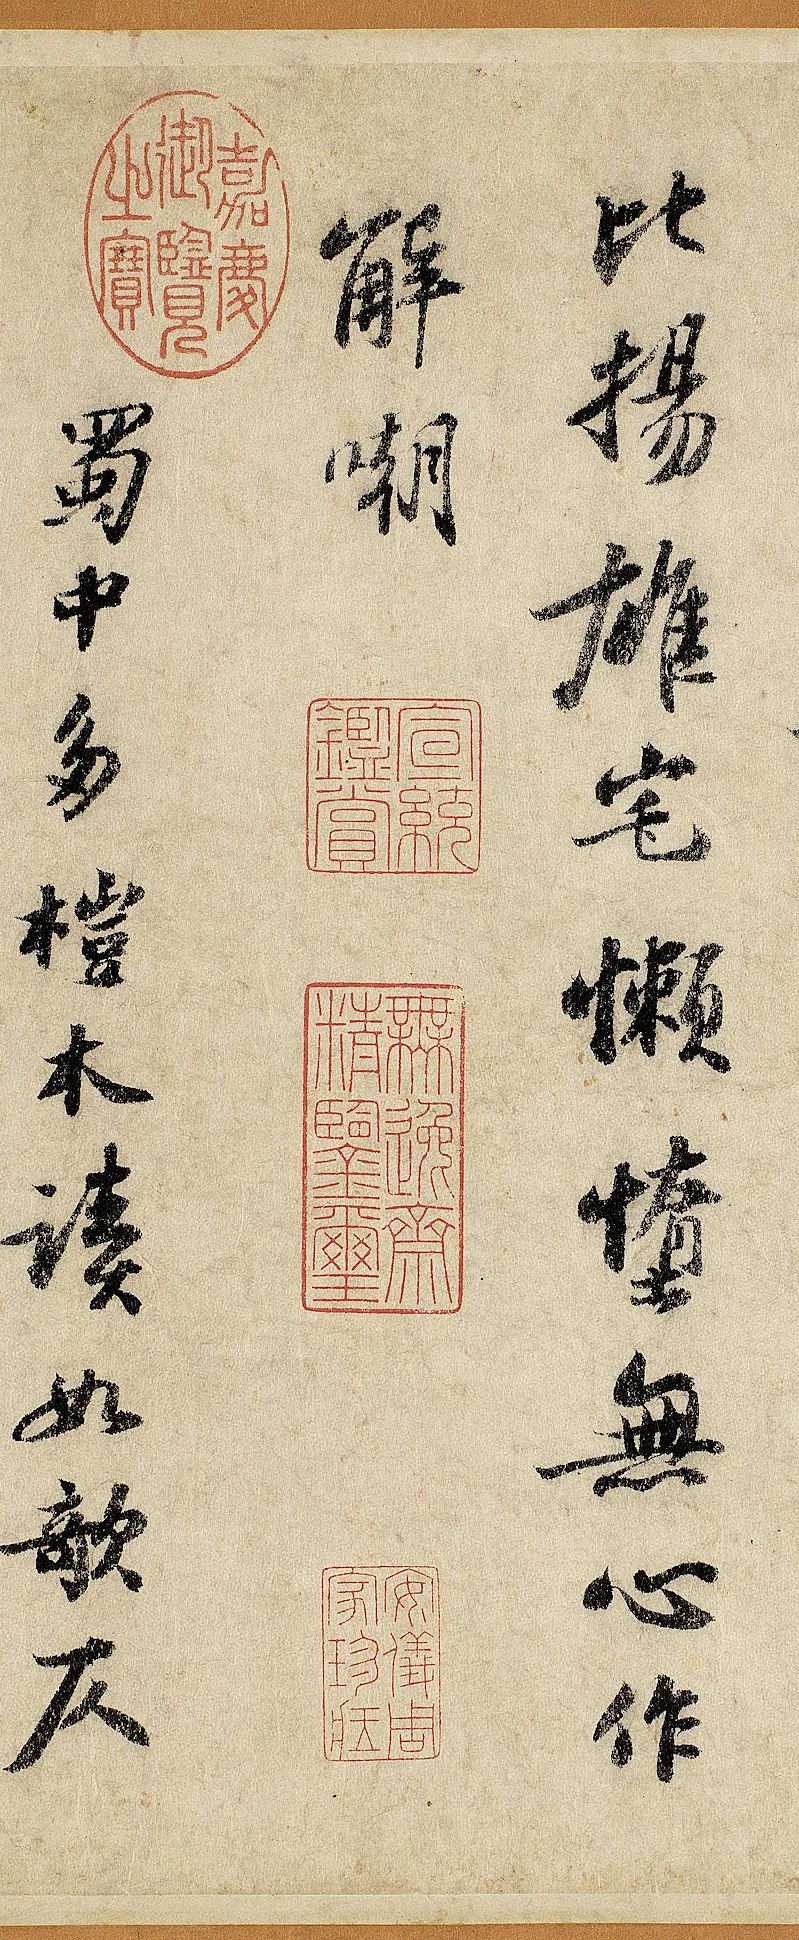 比揚雄宅懶惰無心作
解嘲
宣統鑑賞
無逸齋精鑒璽
安儀周家珍藏
嘉慶御覽之寶
蜀中多榿木讀如欹仄